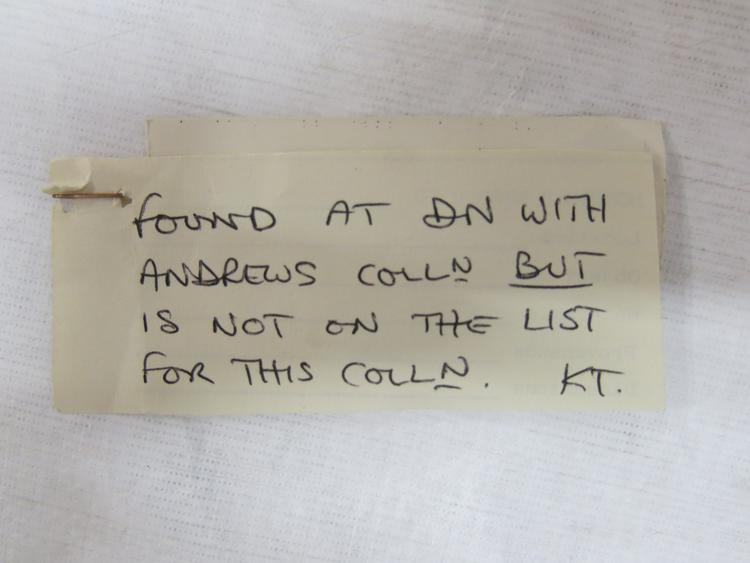 FOUND AT DN WITH
ANDREWS COLLN BUT
IS NOT ON THE LIST
FOR THIS COLLN. KT.